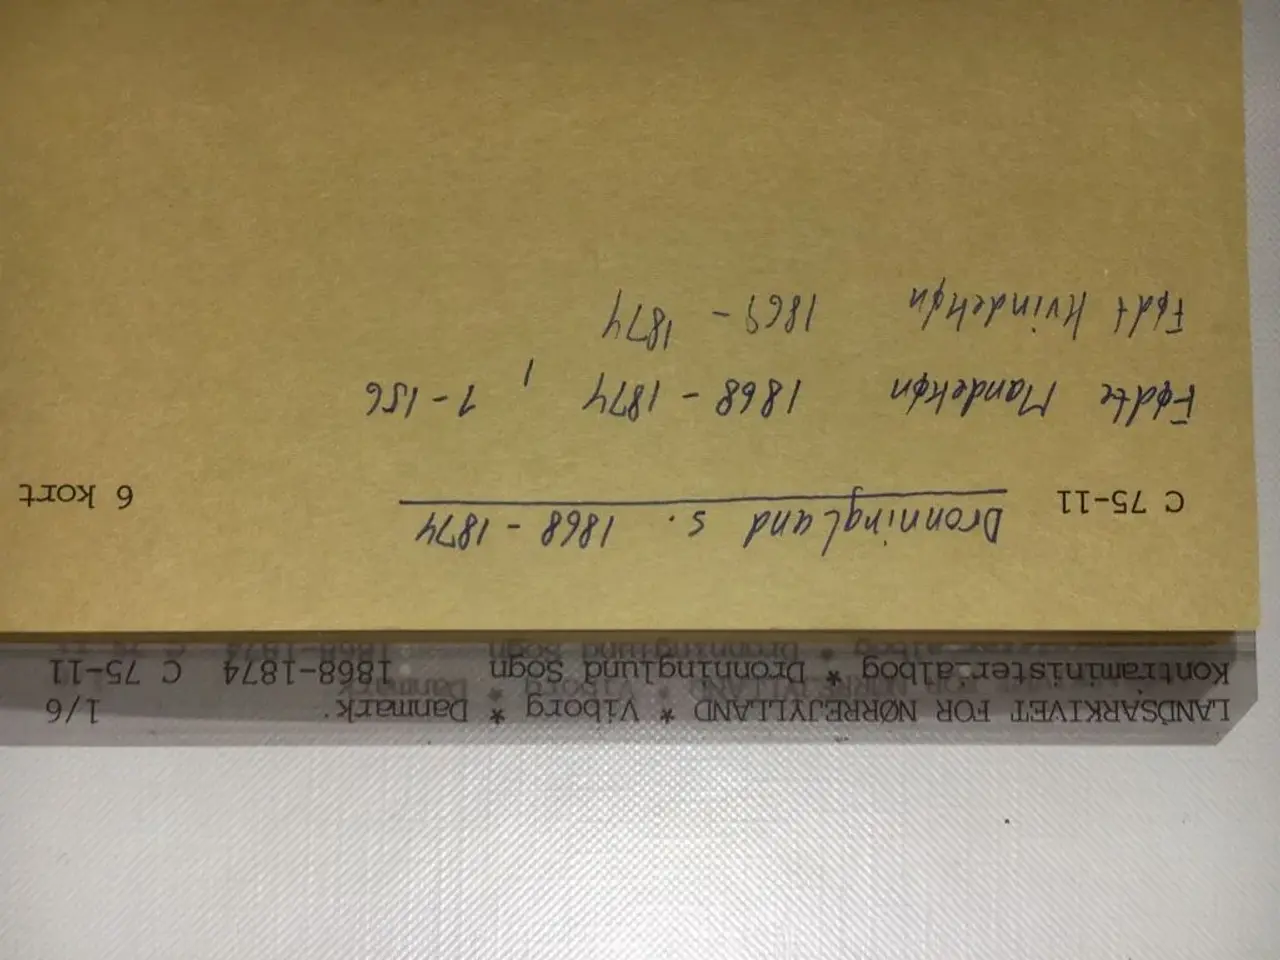 LANDSARKIVET FOR NØRREJYLLAND * Viborg * Danmark. 1/6
Kontraministerialbog * Dronninglund Sogn 1868-1874 C 75-11
C 75-11 Dronninglund s. 1868 - 1874 6 kort
Fødte Mandekøn 1868 - 1874, 1-156
Født Kvindekøn 1869 - 1874